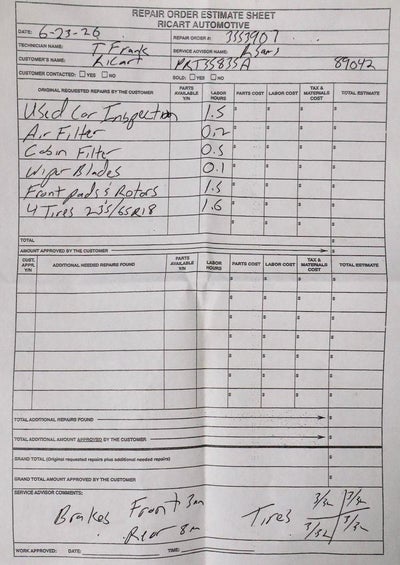 REPAIR ORDER ESTIMATE SHEET
RICART AUTOMOTIVE
DATE: 6-23-26 REPAIR ORDER #: 3553907
TECHNICIAN NAME: T Frank SERVICE ADVISOR NAME:
CUSTOMER'S NAME: Ricart PRT35835A 89042
CUSTOMER CONTACTED: YES NO SOLD: YES NO
ORIGINAL REQUESTED REPAIRS BY THE CUSTOMER PARTS AVAILABLE Y/N LABOR HOURS PARTS COST LABOR COST TAX & MATERIALS COST TOTAL ESTIMATE
Used Car Inspection 1.5 $ $ $ $
Air Filter 0.2 $ $ $ $
Cabin Filter 0.5 $ $ $ $
Wiper Blades 0.1 $ $ $ $
Front pads & Rotors 1.5 $ $ $ $
4 Tires 235/65R18 1.6 $ $ $ $
$ $ $ $
TOTAL $
AMOUNT APPROVED BY THE CUSTOMER $
CUST. APPR. Y/N ADDITIONAL NEEDED REPAIRS FOUND PARTS AVAILABLE Y/N LABOR HOURS PARTS COST LABOR COST TAX & MATERIALS COST TOTAL ESTIMATE
$ $ $ $
$ $ $ $
$ $ $ $
$ $ $ $
$ $ $ $
$ $ $ $
$ $ $ $
TOTAL ADDITIONAL REPAIRS FOUND $
TOTAL ADDITIONAL AMOUNT APPROVED BY THE CUSTOMER $
GRAND TOTAL (Original requested repairs plus additional needed repairs) $
GRAND TOTAL AMOUNT APPROVED BY THE CUSTOMER $
SERVICE ADVISOR COMMENTS:
Brakes Front 3m Tires 3/32 3/32
Rear 8m 3/32 3/32
WORK APPROVED: DATE: TIME: